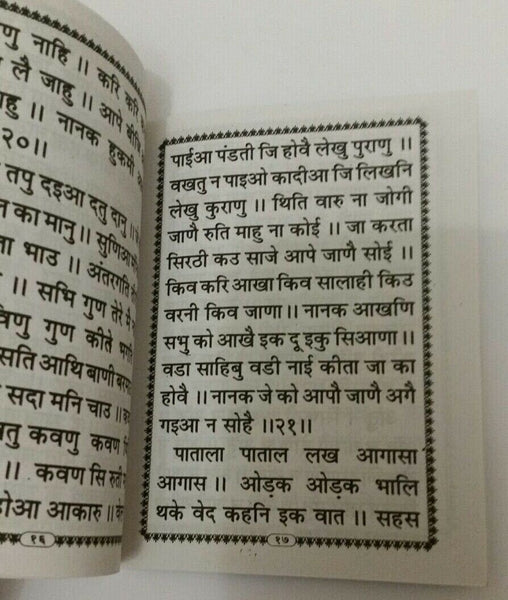 णु नाहि ।। करि करि
लै जाहु ।। आपे बीजि
हु ।। नानक हुकमी
२०।।
तपु दइआ दतु दानु
का मानु ।। सुणिआ
ता भाउ ।। अंतरगति
।। सभि गुण तेरे मै
विणु गुण कीते भगति
सति आथि बाणी बरमा
सदा मनि चाउ ।।
खतु कवणु कवण
।। कवण सि रुती
होआ आकारु ।।
१६
पाईआ पंडती जि होवै लेखु पुराणु ।।
वखतु न पाइओ कादीआ जि लिखनि
लेखु कुराणु ।। थिति वारु ना जोगी
जाणै रुति माहु ना कोई ।। जा करता
सिरठी कउ साजे आपे जाणै सोई ।।
किव करि आखा किव सालाही किउ
वरनी किव जाणा ।। नानक आखणि
सभु को आखै इक दू इकु सिआणा ।।
वडा साहिबु वडी नाई कीता जा का
होवै ।। नानक जे को आपौ जाणै अगै
गइआ न सोहै ।।२१।।
पाताला पाताल लख आगासा
आगास ।। ओड़क ओड़क भालि
थके वेद कहनि इक वात ।। सहस
१७